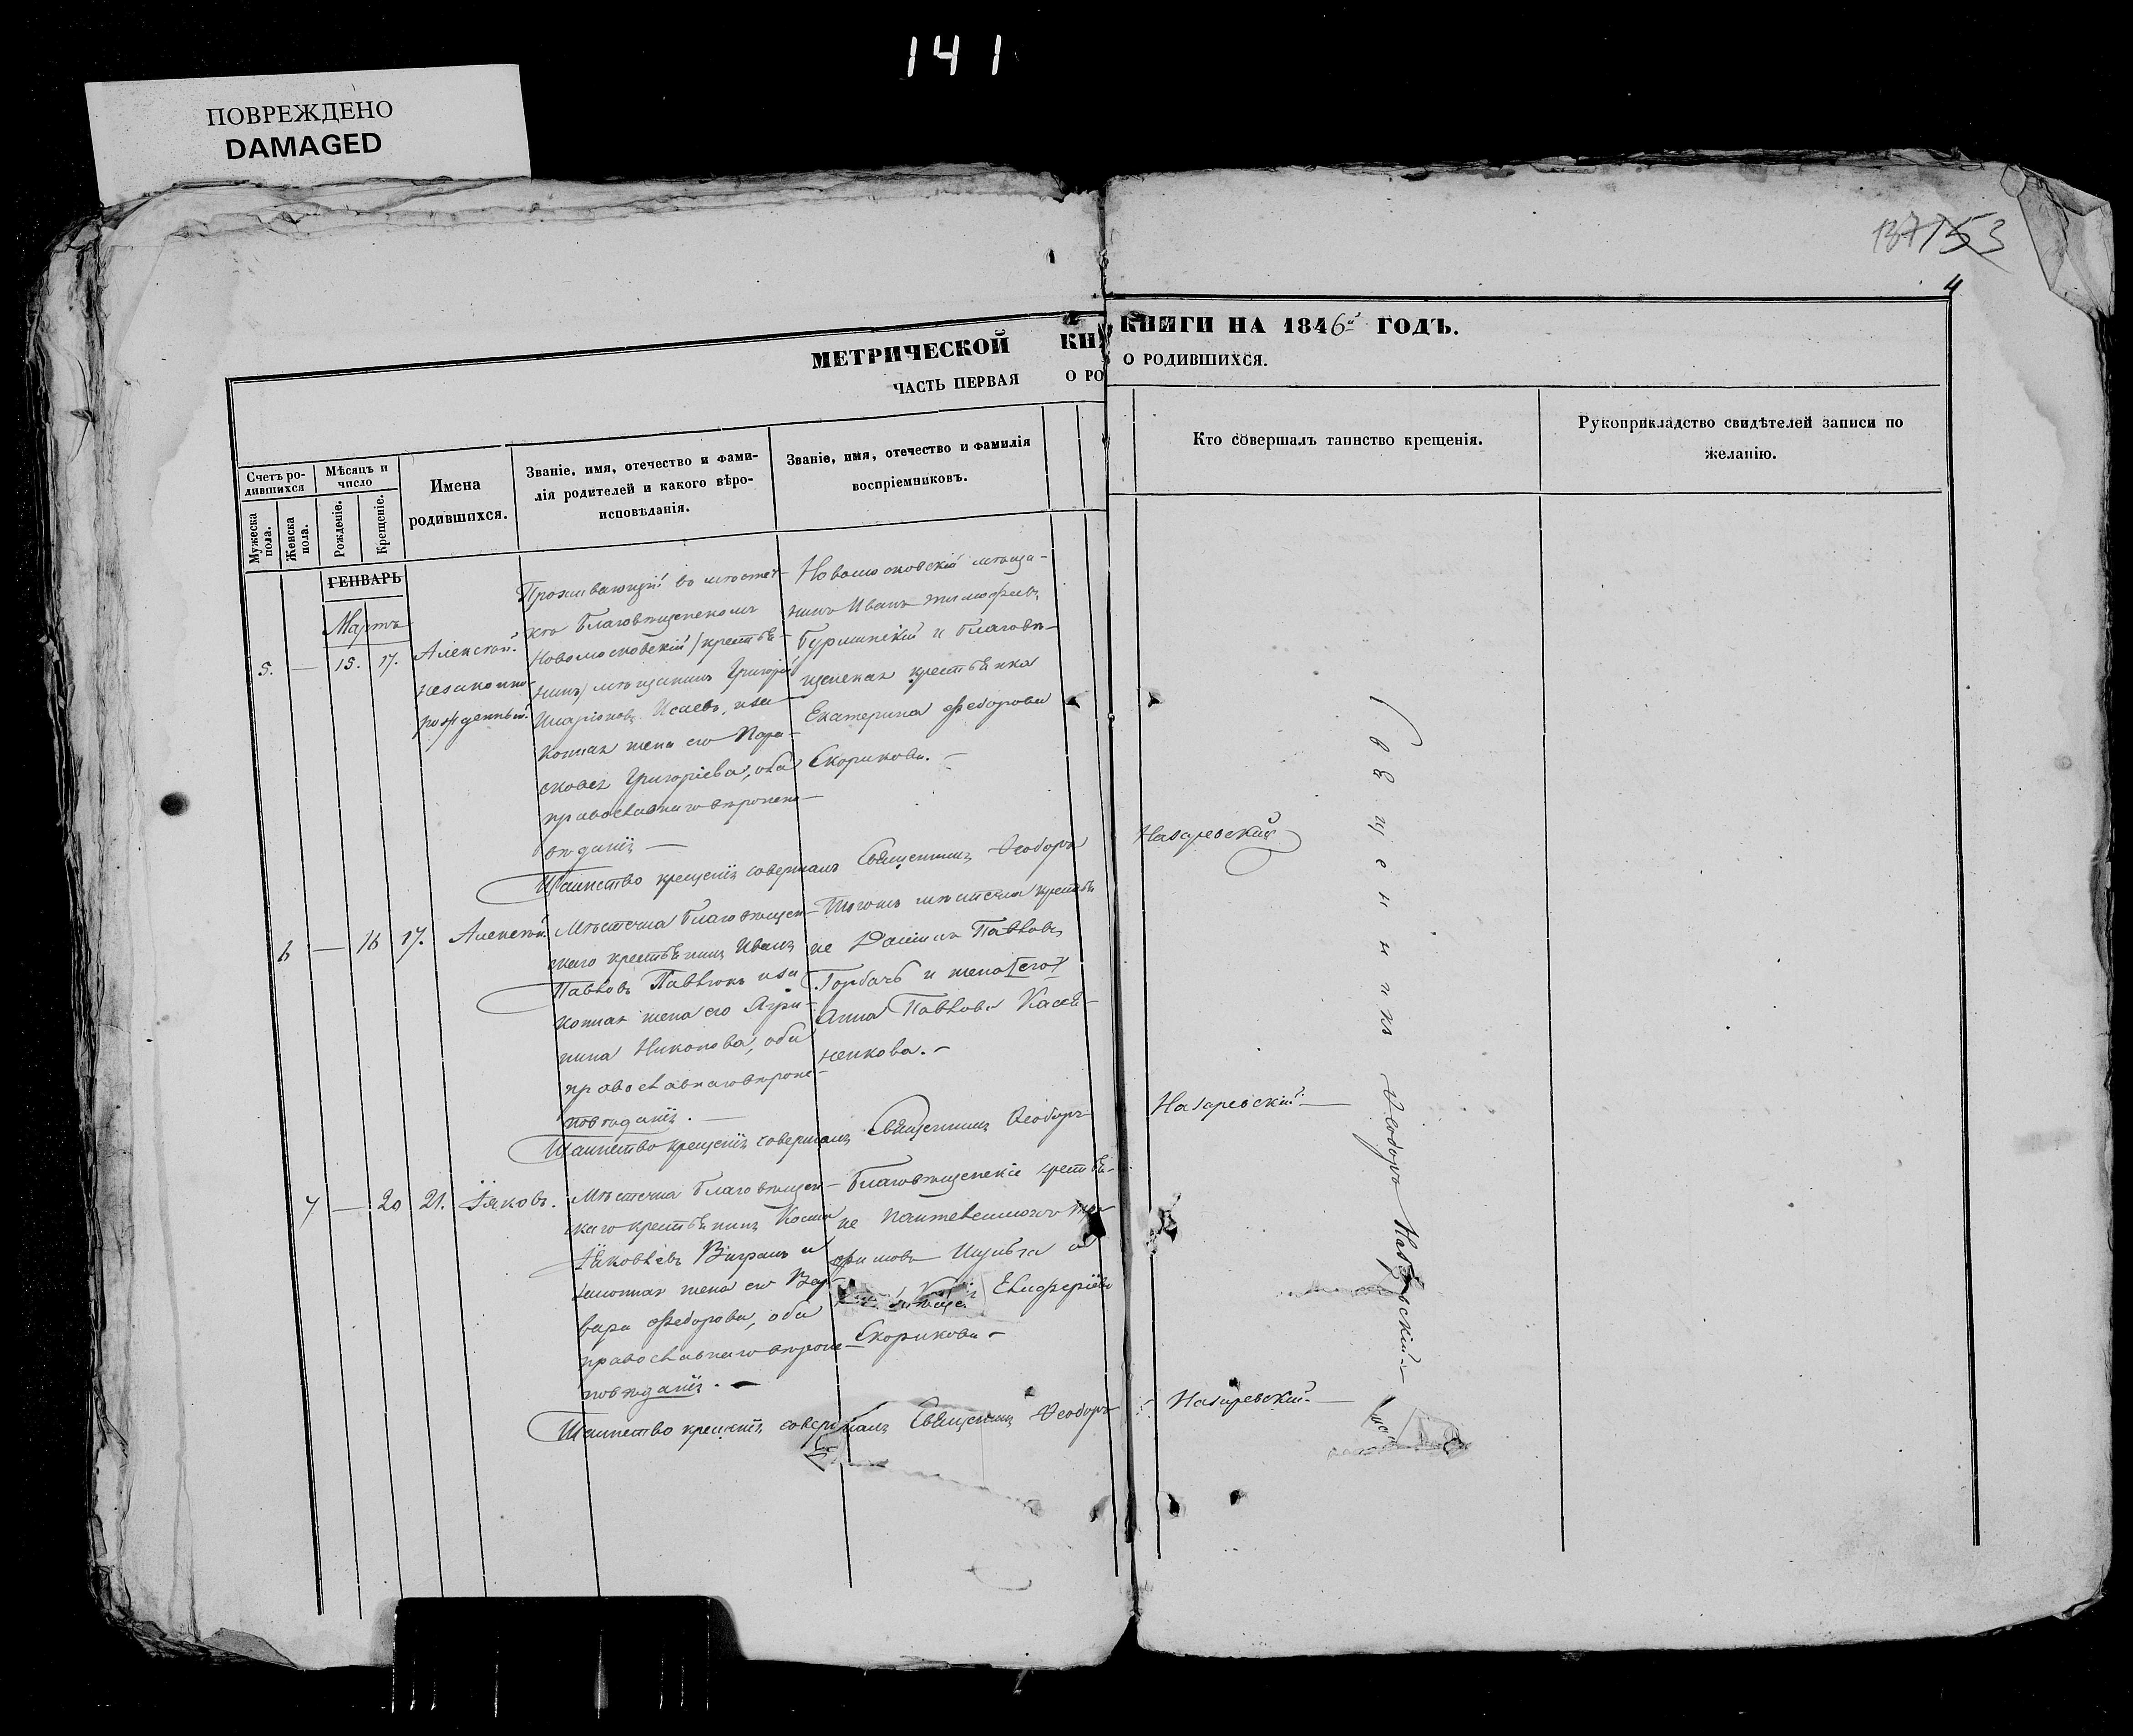 141
ПОВРЕЖДЕНО
DAMAGED
137 153
4
МЕТРИЧЕСКОЙ КНИГИ НА 1846й ГОДЪ.
ЧАСТЬ ПЕРВАЯ О РОДИВШИХСЯ.
Счетъ родившихся
Мужеска пола.
Женска пола.
Мѣсяцъ и число
Рожденіе.
Крещеніе.
Имена
родившихся.
Званіе, имя, отечество и фами-
лія родителей и какого вѣро-
исповѣданія.
Званіе, имя, отечество и фамилія
воспріемниковъ.
Кто совершалъ таинство крещенія.
Рукоприкладство свидѣтелей записи по
желанію.
ГЕНВАРЬ
Мартъ
5. — 15. 17.
Алексѣй.
незаконно-
рожденный.
Проживающій въ мѣстеч-
кѣ Благовѣщенскомъ
Новомосковскій (крестья-
нинъ) мѣщанинъ Григорій
Иларіоновъ Исаевъ, и за-
конная жена его Пара-
сковея Григоріева, оба
православнаго вѣроиспо-
вѣданія —
Новомосковскій мѣща-
нинъ Иванъ Тимофеевъ
и Благовѣ-
щенская крестьянка
Екатерина Федорова
Скорикова. —
Таинство крещенія совершалъ Священникъ Ѳеодоръ
Назаревскій
6 — 16 17.
Алексѣй.
Мѣстечка Благовѣщен-
скаго крестьянинъ Иванъ
Павловъ Павлюкъ и за-
конная жена его Агри-
пина Никонова, оба
православнаго вѣроис-
повѣданія. —
Тогожъ мѣстечка крестья-
не Даніилъ Павловъ
Горбачъ и жена [его]
Анна Павлова
Таинство крещенія совершалъ Священникъ Ѳеодоръ
Назаревскій —
7 — 20 21.
Іяковъ.
Мѣстечка Благовѣщен-
скаго крестьянинъ Косма
Іяковлевъ и
законная жена его Вар-
вара Федорова, оба
православнаго вѣроис-
повѣданія. —
Благовѣщенскіе крестья-
не Пантелеимонъ
и
Елиферіева
Скорикова —
Таинство крещенія совершалъ Священникъ Ѳеодоръ
Назаревскій. —
Священникъ Ѳеодоръ Назаревскій —